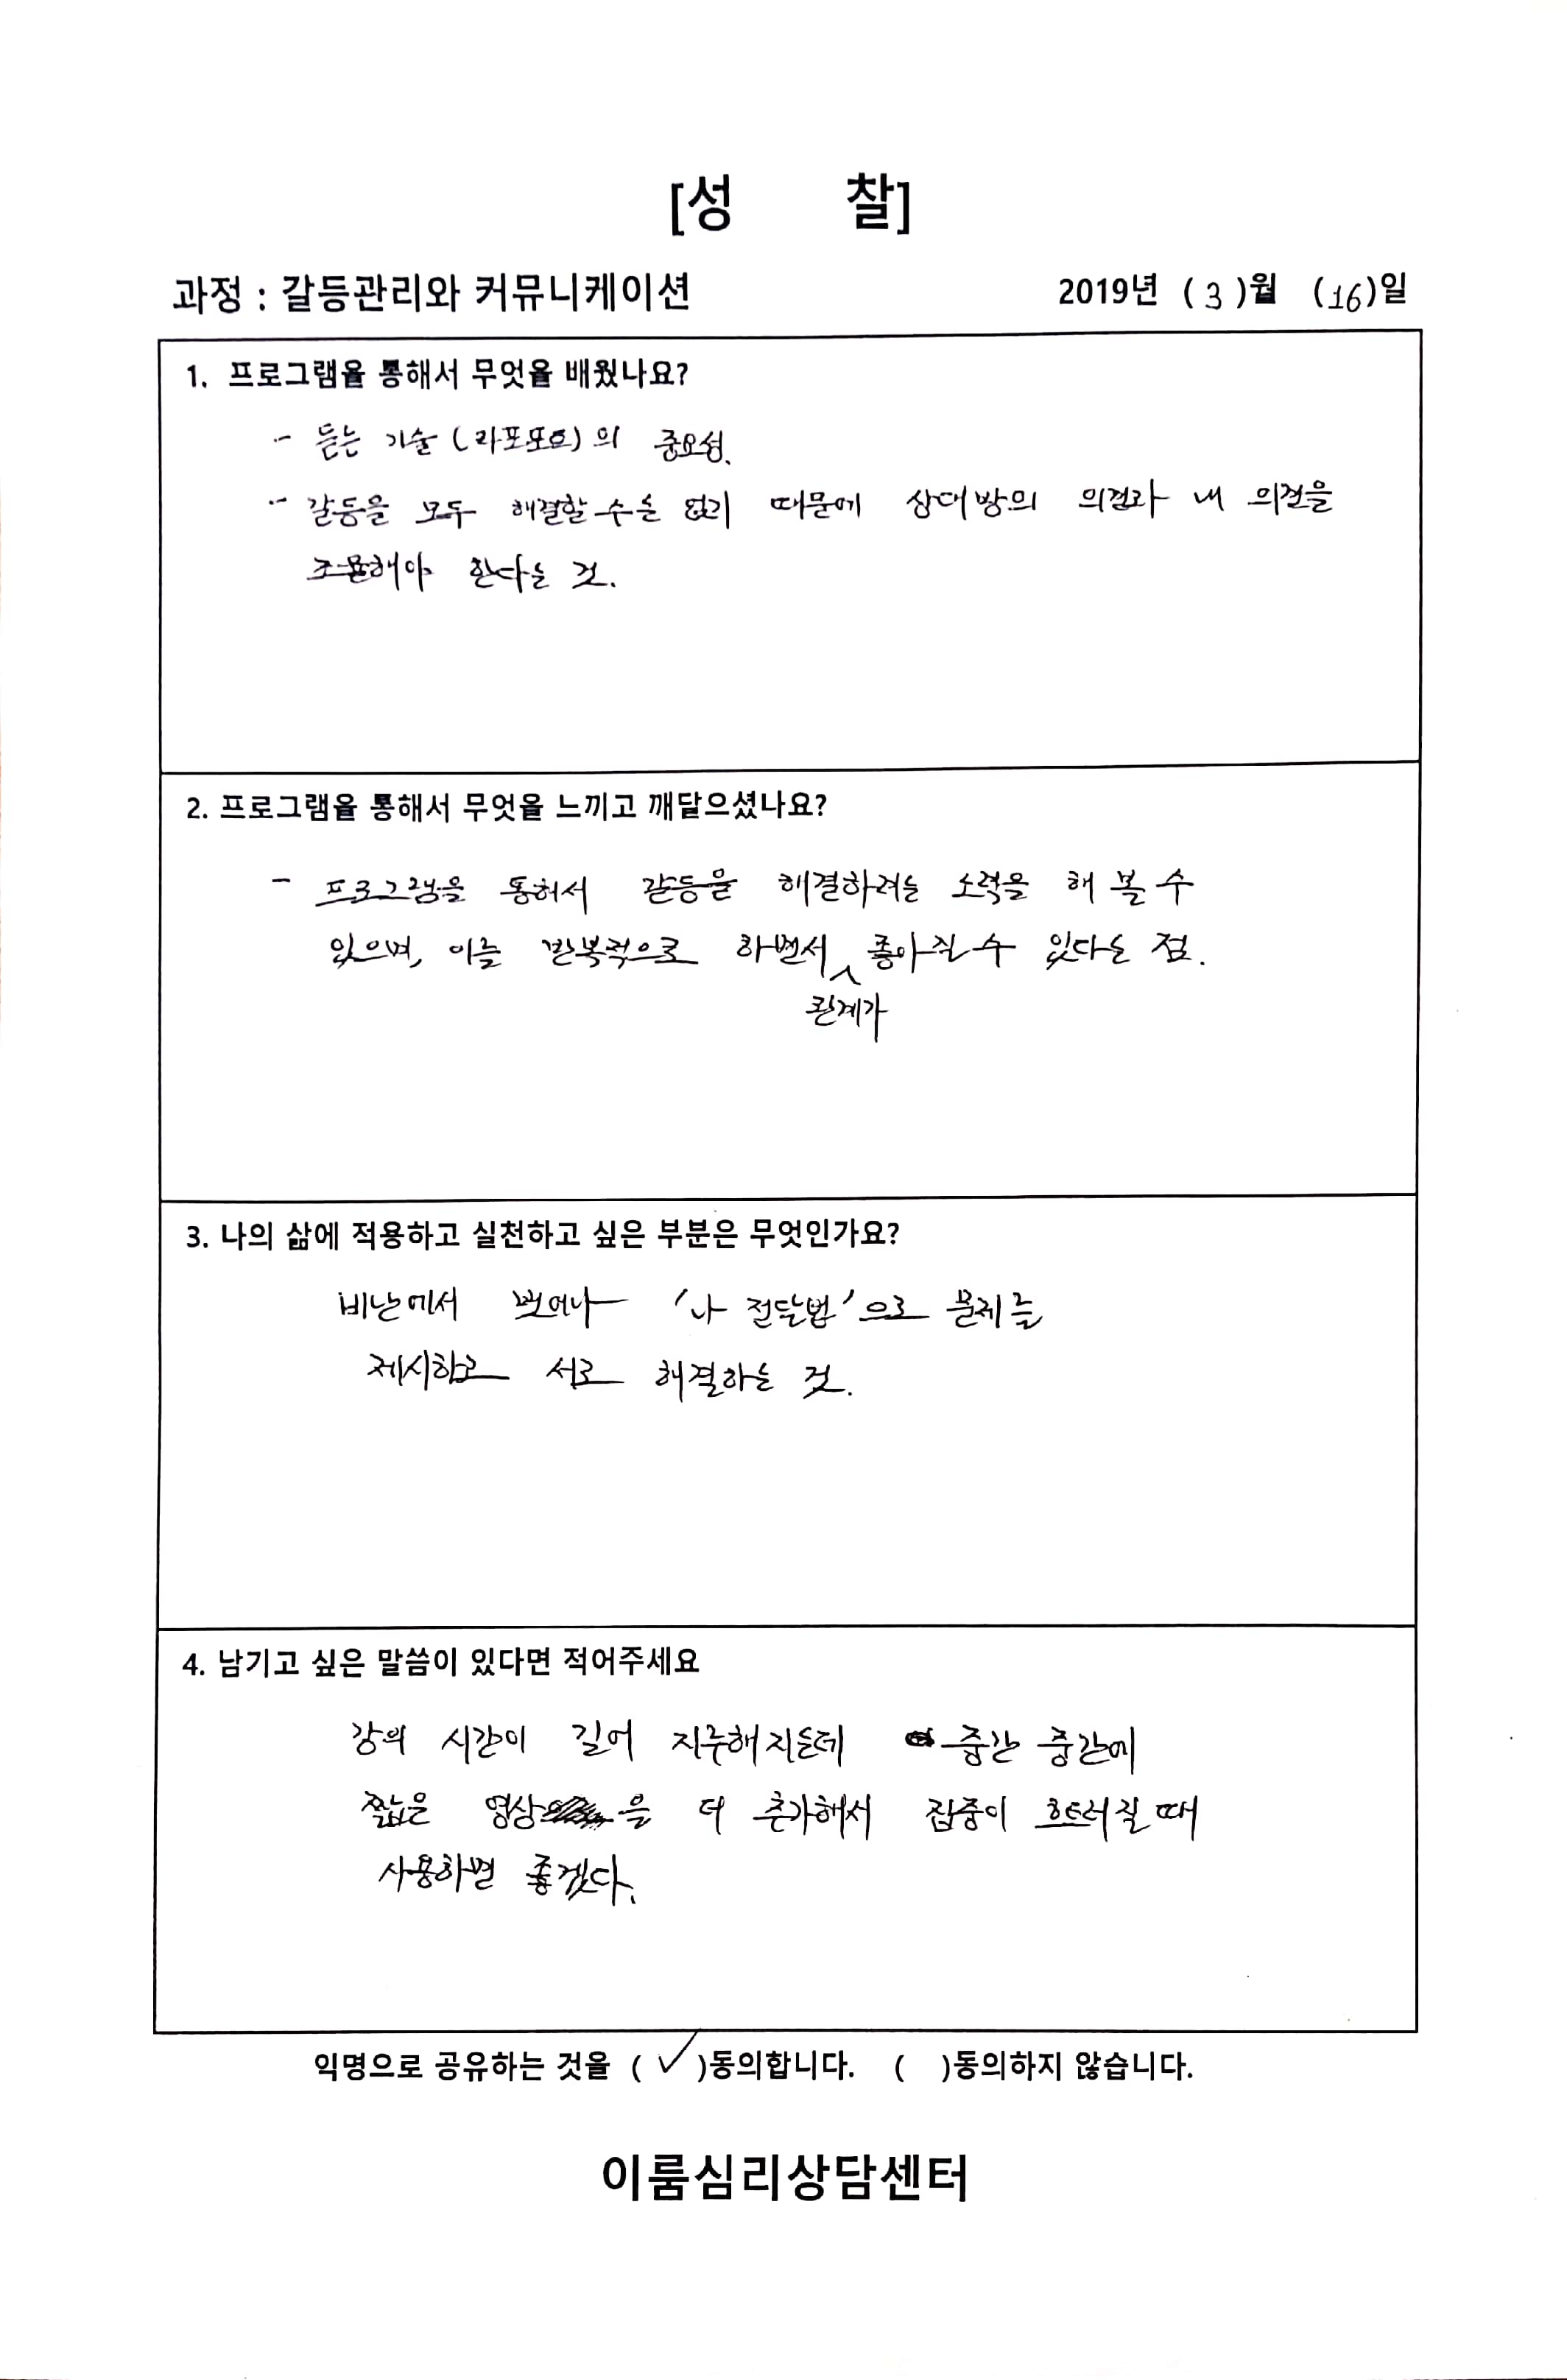 [성 찰]
과정 : 갈등관리와 커뮤니케이션 2019년 ( 3 )월 (16)일
1. 프로그램을 통해서 무엇을 배웠나요?
- 듣는 기술 (라포포요)의 중요성.
- 갈등을 모두 해결할 수는 없기 때문에 상대방의 의견과 내 의견을
조율해야 한다는 것.
2. 프로그램을 통해서 무엇을 느끼고 깨달으셨나요?
- 프로그램을 통해서 갈등을 해결하려는 노력을 해 볼 수
있으며, 이를 반복적으로 하면서 좋아질 수 있다는 점.
관계가
3. 나의 삶에 적용하고 실천하고 싶은 부분은 무엇인가요?
비난에서 벗어나 '나 전달법'으로 문제를
제시하고 서로 해결하는 것.
4. 남기고 싶은 말씀이 있다면 적어주세요
강의 시간이 길어 지루해지는데 중간 중간에
짧은 영상을 더 추가해서 집중이 흐트러질 때
사용하면 좋겠다.
익명으로 공유하는 것을 ( ✓ )동의합니다. ( )동의하지 않습니다.
이룸심리상담센터